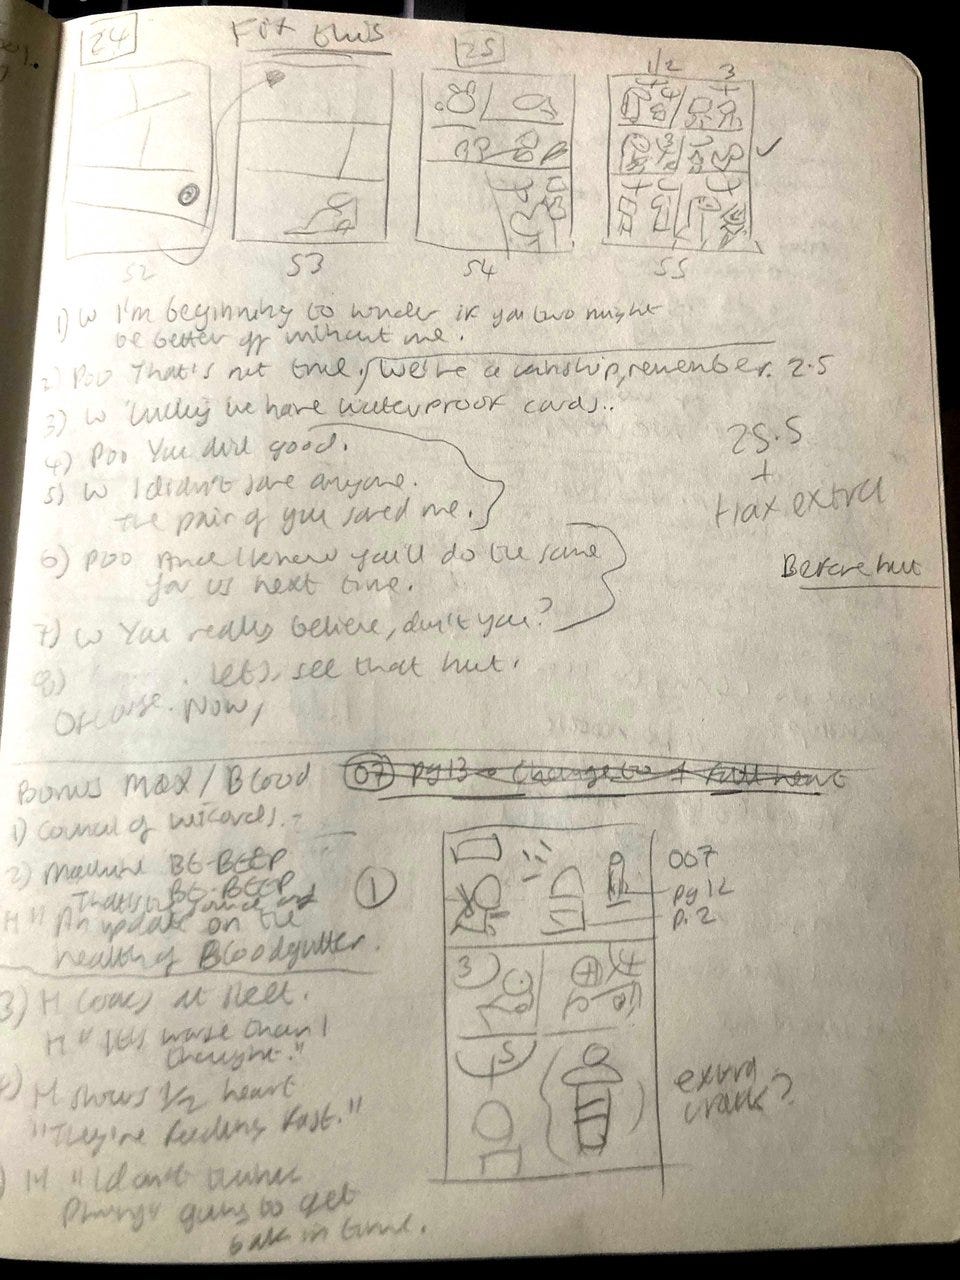 24
Fit this
25
1/2 3
52
53
54
55
1) W I'm beginning to wonder if you two might
be better off without me.
2) Poo That's not true, we're a                remember. 2.5
3) W Lucky we have waterproof cards..
4) Poo You did good.
5) W I didn't save anyone.
the pair of you saved me.
25.5
+
Max extra
6) Poo And I know you'll do the same
for us next time.
Before hut
7) W You really believe, don't you?
8) . let's see that hut.
Of course. Now,
Bonus Max / Blood
07 pg 13 change to full heart
1) Council of wizards.
2) Machine BE-BEEP
BE-BEEP
H " An update on the
health of Bloodgutter.
3) H looks at sheet.
H "It's worse than I
thought."
4) H shows 1/2 heart
"They're feeding fast."
H "I don't think
going to get
back in time.
1
007
pg 12
p. 2
3)
5
extra
crack?